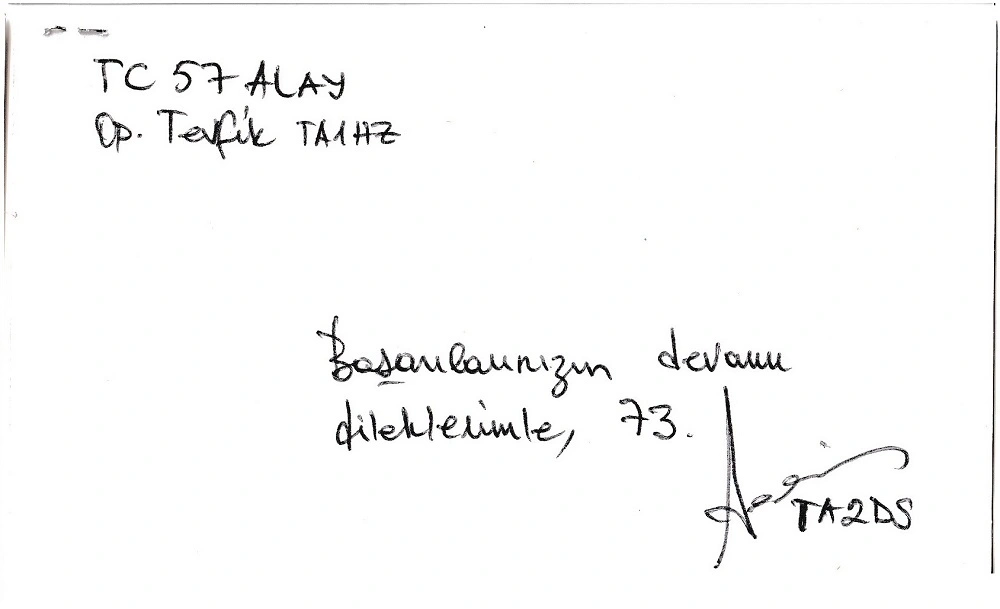 TC 57 ALAY
Op. Tevfik TA1HZ
Başarılarınızın devamı
dileklerimle, 73.
TA2DS